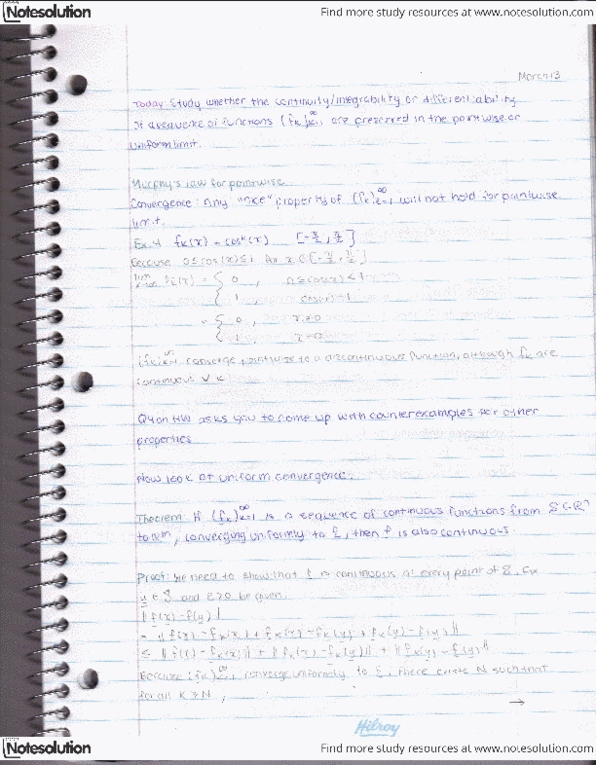 Notesolution
Find more study resources at www.notesolution.com
March 13
Today: Study whether the continuity/integrability or differentiability
of a sequence of functions (fₖ)ₖ₌₁^∞ are preserved in the pointwise or
uniform limit.
Murphy's Law for pointwise
Convergence: Any "nice" property of (fₖ)ₖ₌₁^∞ will not hold for pointwise
limit.
Ex. fₖ(x) = cosᵏ(x) [-π/2, π/2]
Because 0≤cos(x)≤1 for x ∈ [-π/2, π/2]
lim fₖ(x) = { 0, 0≤cos(x)<1
{ 1, cos(x)=1
= { 0, x≠0
{ 1, x=0
(fₖ)ₖ₌₁^∞ converge pointwise to a discontinuous function, although fₖ are
continuous ∀ k
Q4 on HW asks you to come up with counterexamples for other
properties
Now look at uniform convergence.
Theorem: If (fₖ)ₖ₌₁^∞ is a sequence of continuous functions from S⊂ℝⁿ
to ℝᵐ, converging uniformly to f, then f is also continuous.
Proof: We need to show that f is continuous at every point of S. Fix
y ∈ S and ε>0 be given.
||f(x)-f(y)||
= ||f(x)-fₖ(x)+fₖ(x)-fₖ(y)+fₖ(y)-f(y)||
≤ ||f(x)-fₖ(x)|| + ||fₖ(x)-fₖ(y)|| + ||fₖ(y)-f(y)||
Because (fₖ)ₖ₌₁^∞ converge uniformly to f, there exists N such that
for all k≥N,
→
Hilroy
Notesolution
Find more study resources at www.notesolution.com